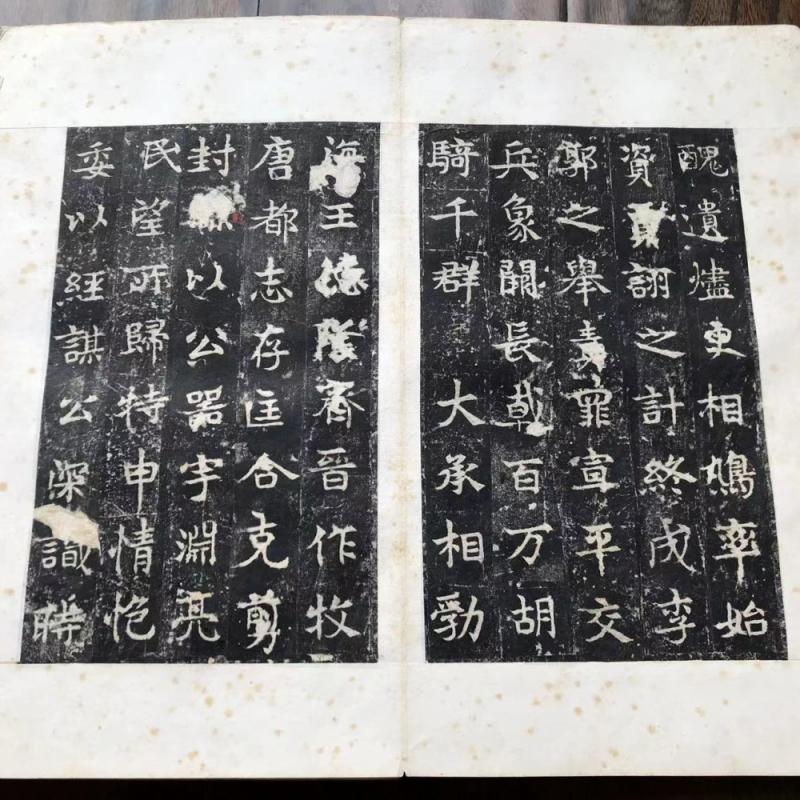 醜遺燼更相鳩率始
資翼詡之計終成李
郭之舉責罪宣平交
兵象闕長戟百万胡
騎千群大承相勃
海王德隆齊晋作牧
唐都志存匡合克剪
封以公器宇淵亮
民望所歸特申情悒
委以經謀公深識時